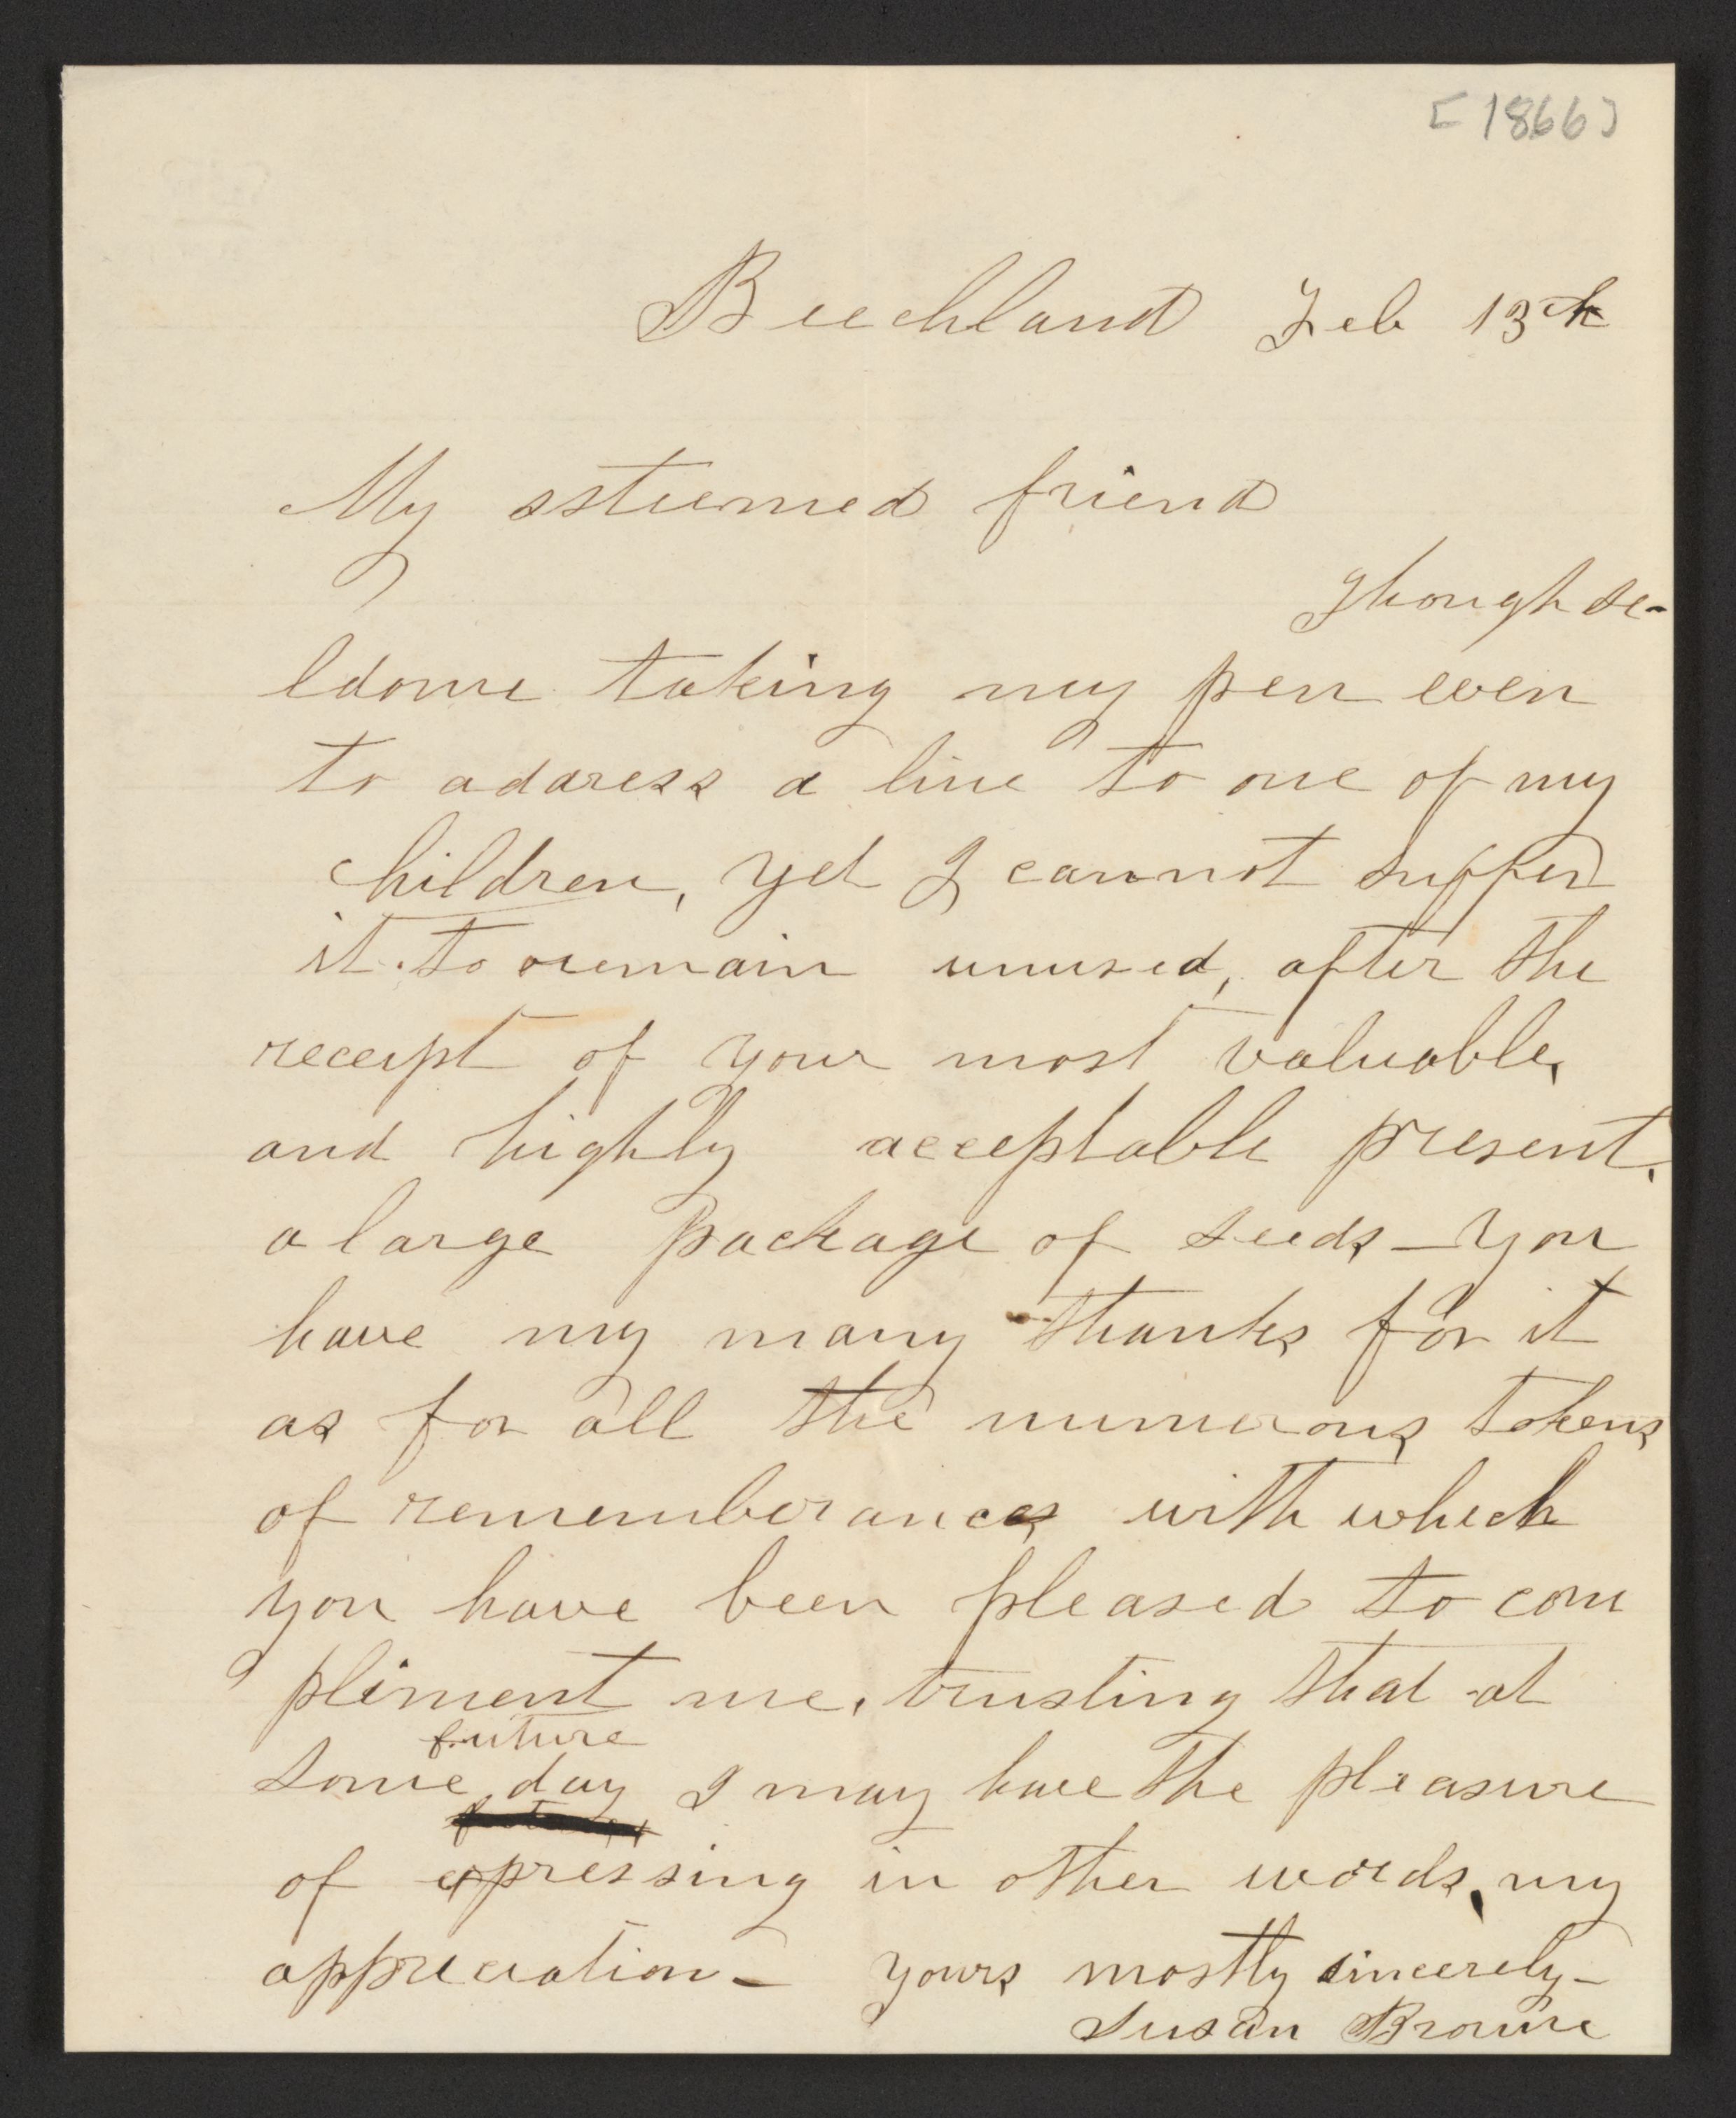 [1866]
Beechland Feb 13th
My esteemed friend
Though se-
ldome taking my pen even
to address a line to one of my
children, yet I cannot suffer
it to remain unused, after the
receipt of your most valuable,
and highly acceptable present,
a large package of seeds - you
have my many thanks for it
as for all the numerous tokens
of rememberances with which
you have been pleased to com
pliment me, trusting that at
future
some day I may have the pleasure
of expressing in other words, my
appreciation - yours mostly sincerely -
Susan Browne